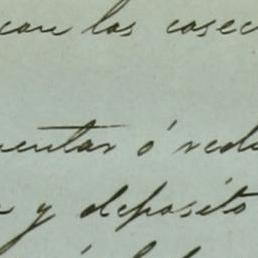 can las cosec
mentar ó redu
y deposito